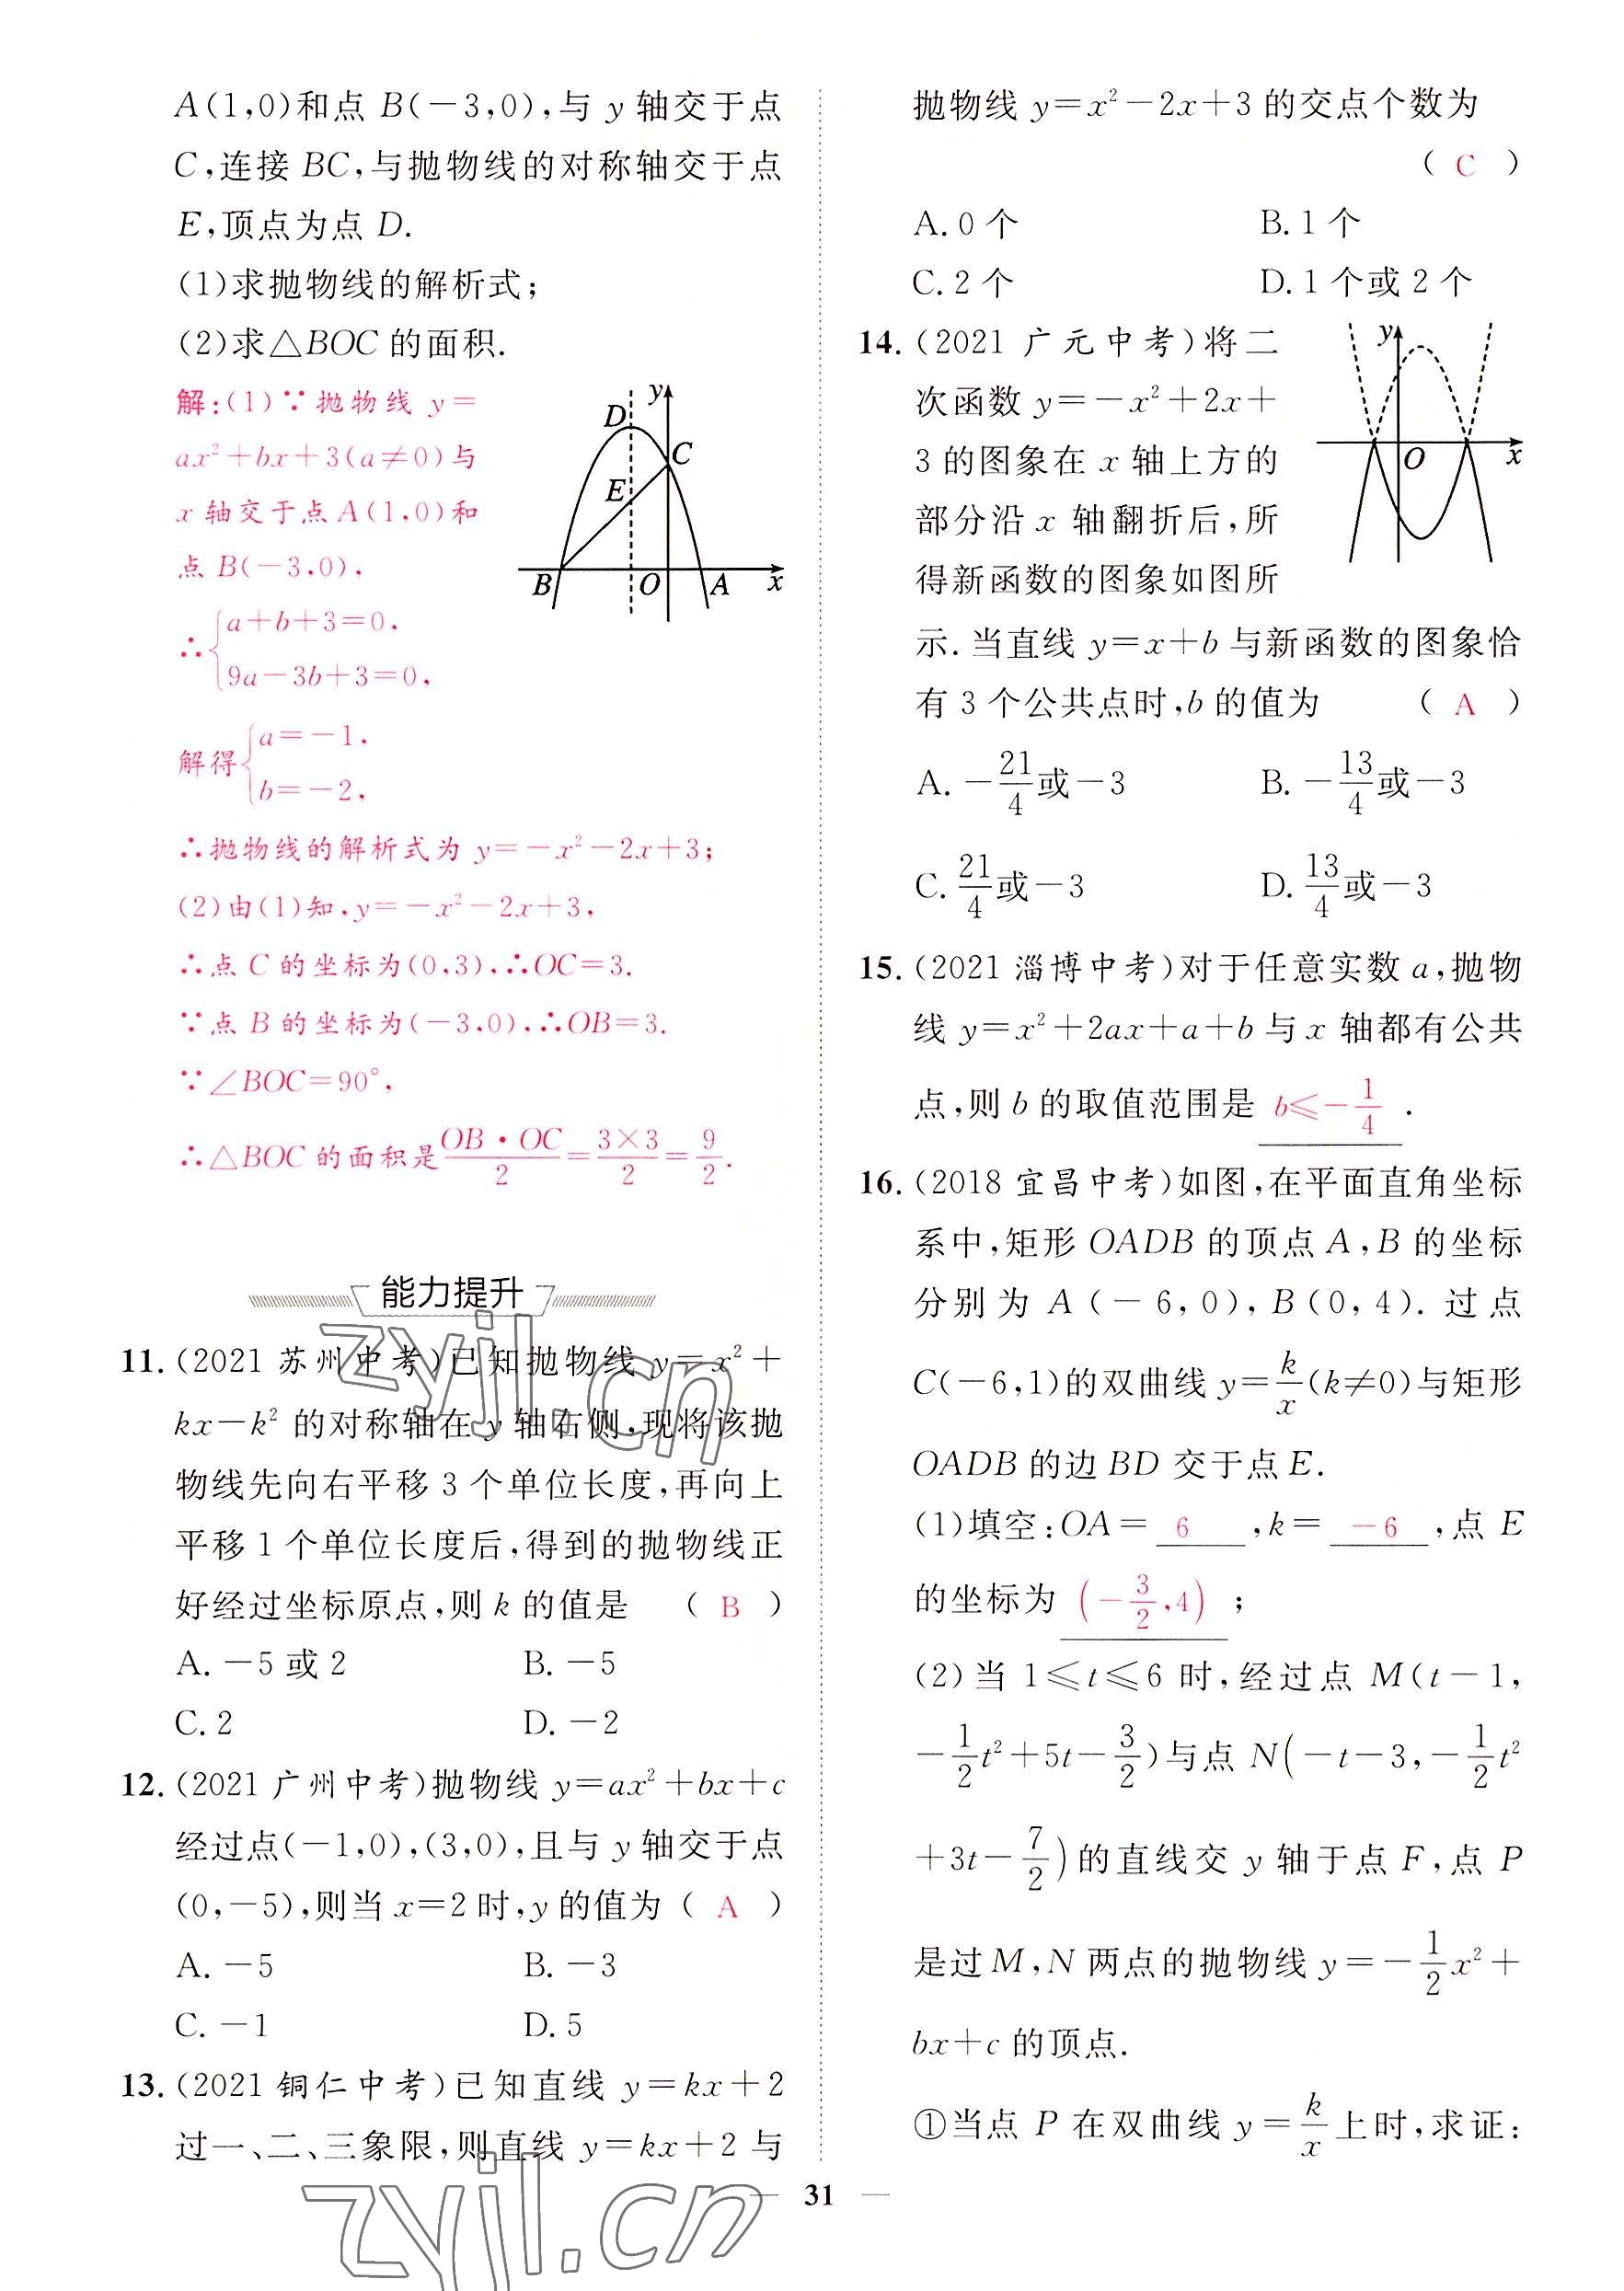 A(1,0)和点 B(-3,0),与 y 轴交于点
C,连接 BC,与抛物线的对称轴交于点
E,顶点为点 D.
(1)求抛物线的解析式;
(2)求△BOC 的面积.
解:(1)∵抛物线 y=
ax²+bx+3(a≠0)与
x 轴交于点 A(1,0)和
点 B(-3,0),
∴{a+b+3=0,
9a-3b+3=0,
解得{a=-1,
b=-2,
∴抛物线的解析式为 y=-x²-2x+3;
(2)由(1)知,y=-x²-2x+3,
∴点 C 的坐标为(0,3),∴OC=3.
∵点 B 的坐标为(-3,0),∴OB=3.
∵∠BOC=90°,
∴△BOC 的面积是OB·OC/2=3×3/2=9/2.
y
D
C
E
B
O
A
x
能力提升
11.(2021 苏州中考)已知抛物线 y=x²+
kx-k² 的对称轴在 y 轴右侧,现将该抛
物线先向右平移 3 个单位长度,再向上
平移 1 个单位长度后,得到的抛物线正
好经过坐标原点,则 k 的值是 ( B )
A. -5 或 2 B. -5
C. 2 D. -2
12.(2021 广州中考)抛物线 y=ax²+bx+c
经过点(-1,0),(3,0),且与 y 轴交于点
(0,-5),则当 x=2 时,y 的值为 ( A )
A. -5 B. -3
C. -1 D. 5
13.(2021 铜仁中考)已知直线 y=kx+2
过一、二、三象限,则直线 y=kx+2 与
抛物线 y=x²-2x+3 的交点个数为
( C )
A. 0 个 B. 1 个
C. 2 个 D. 1 个或 2 个
14.(2021 广元中考)将二
次函数 y=-x²+2x+
3 的图象在 x 轴上方的
部分沿 x 轴翻折后,所
得新函数的图象如图所
示.当直线 y=x+b 与新函数的图象恰
有 3 个公共点时,b 的值为 ( A )
y
O
x
A. -21/4或-3 B. -13/4或-3
C. 21/4或-3 D. 13/4或-3
15.(2021 淄博中考)对于任意实数 a,抛物
线 y=x²+2ax+a+b 与 x 轴都有公共
点,则 b 的取值范围是 b≤-1/4 .
16.(2018 宜昌中考)如图,在平面直角坐标
系中,矩形 OADB 的顶点 A,B 的坐标
分别为 A(-6,0),B(0,4).过点
C(-6,1)的双曲线 y=k/x(k≠0)与矩形
OADB 的边 BD 交于点 E.
(1)填空:OA= 6 ,k= -6 ,点 E
的坐标为 (-3/2,4) ;
(2)当 1≤t≤6 时,经过点 M(t-1,
-1/2t²+5t-3/2)与点 N(-t-3,-1/2t²
+3t-7/2)的直线交 y 轴于点 F,点 P
是过 M,N 两点的抛物线 y=-1/2x²+
bx+c 的顶点.
①当点 P 在双曲线 y=k/x上时,求证:
31
zyjl.cn
zyjl.cn